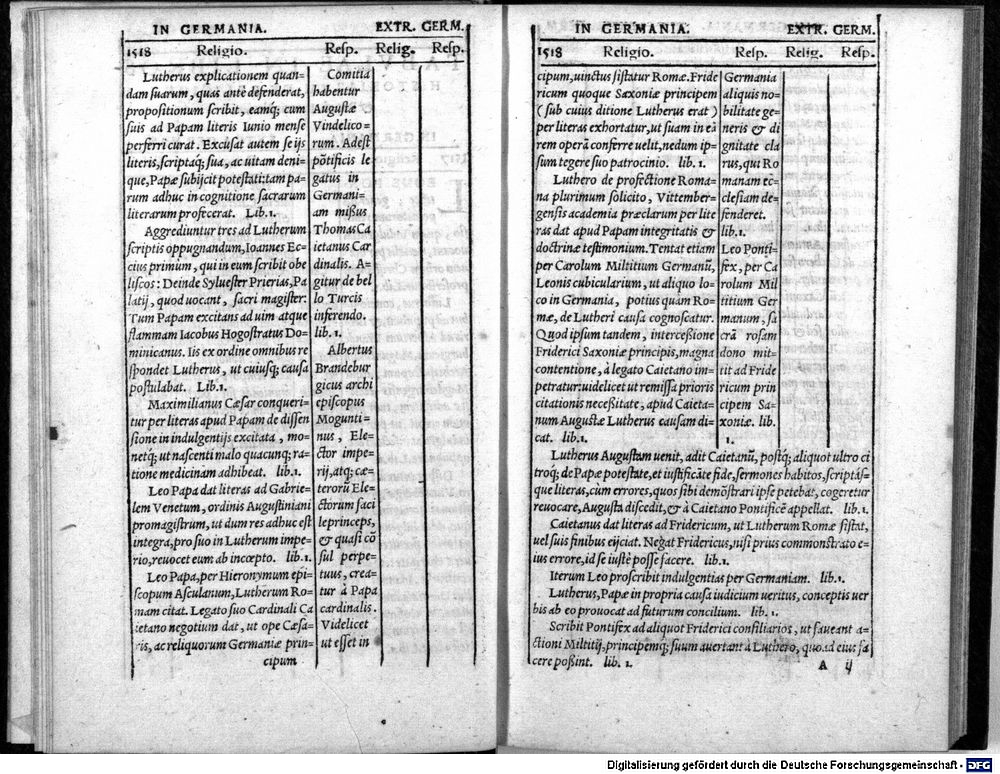 IN GERMANIA. EXTR. GERM.
1518 Religio. Resp. Relig. Resp.
Lutherus explicationem quan-
dam suarum, quas antè defenderat,
propositionum scribit, eamq; cum
suis ad Papam literis Iunio mense
perferri curat. Excusat autem se ijs
literis, scriptaq; sua, ac uitam deni-
que, Papæ subijcit potestati: tam pa-
rum adhuc in cognitione sacrarum
literarum profecerat. Lib. 1.
Aggrediuntur tres ad Lutherum
scriptis oppugnandum, Ioannes Ec-
cius primùm, qui in eum scribit obe
liscos: Deinde Syluester Prierias, Pa
latij, quod uocant, sacri magister:
Tum Papam excitans ad uim atque
flammam Iacobus Hogostratus Do-
minicanus. Iis ex ordine omnibus re
spondet Lutherus, ut cuiusq; causa
postulabat. Lib. 1.
Maximilianus Cæsar conqueri-
tur per literas apud Papam de dissen
sione in indulgentijs excitata, mo-
netq; ut nascenti malo quacunq; ra-
tione medicinam adhibeat. lib. 1.
Leo Papa dat literas ad Gabrie-
lem Venetum, ordinis Augustiniani
promagistrum, ut dum res adhuc est
integra, pro suo in Lutherum impe-
rio, reuocet eum ab incœpto. lib. 1.
Leo Papa, per Hieronymum epi-
scopum Asculanum, Lutherum Ro-
mam citat. Legato suo Cardinali Ca
ietano negotium dat, ut ope Cæsa-
ris, ac reliquorum Germaniæ prin-
cipum
Comitia
habentur
Augustæ
Vindelico-
rum. Adest
põtificis le
gatus in
Germani-
am missus
Thomas Ca
ietanus Car
dinalis. A-
gitur de bel
lo Turcis
inferendo.
lib. 1.
Albertus
Brandebur
gicus archi
episcopus
Mogunti-
nus, Ele-
ctor impe-
rij, atq; cæ-
terorũ Ele-
ctorum faci
le princeps,
& quasi cõ
sul perpe-
tuus, crea-
tur à Papa
cardinalis.
Videlicet
ut esset in
IN GERMANIA. EXTR. GERM.
1518 Religio. Resp. Relig. Resp.
cipum, uinctus sistatur Romæ. Fride
ricum quoque Saxoniæ principem
(sub cuius ditione Lutherus erat)
per literas exhortatur, ut suam in eã
rem operã conferre uelit, nedum ip-
sum tegere suo patrocinio. lib. 1.
Luthero de profectione Roma-
na plurimum solicito, Vittember-
gensis academia præclarum per lite
ras dat apud Papam integritatis &
doctrinæ testimonium. Tentat etiam
per Carolum Miltitium Germanũ,
Leonis cubicularium, ut aliquo lo-
co in Germania, potius quàm Ro-
mæ, de Lutheri causa cognoscatur.
Quod ipsum tandem, intercessione
Friderici Saxoniæ principis, magna
contentione, à legato Caietano im-
petratur: uidelicet ut remissa prioris
citationis necessitate, apud Caieta-
num Augustæ Lutherus causam di-
cat. lib. 1.
Germania
aliquis no-
bilitate ge-
neris & di
gnitate cla
rus, qui Ro
manam ec-
clesiam de-
fenderet.
lib. 1.
Leo Ponti-
fex, per Ca
rolum Mil
titium Ger
manum, sa
crã rosam
dono mit-
tit ad Fride
ricum prin
cipem Sa-
xoniæ. lib.
1.
Lutherus Augustam uenit, adit Caietanũ, postq; aliquot ultro ci
troq; de Papæ potestate, et iustificãte fide, sermones habitos, scriptás-
que literas, cùm errores, quos sibi demõstrari ipse petebat, cogeretur
reuocare, Augusta discedit, & à Caietano Pontificẽ appellat. lib. 1.
Caietanus dat literas ad Fridericum, ut Lutherum Romæ sistat,
uel suis finibus eijciat. Negat Fridericus, nisi prius commonstrato e-
ius errore, id se iustè posse facere. lib. 1.
Iterum Leo proscribit indulgentias per Germaniam. lib. 1.
Lutherus, Papæ in propria causa iudicium ueritus, conceptis uer
bis ab eo prouocat ad futurum concilium. lib. 1.
Scribit Pontifex ad aliquot Friderici consiliarios, ut faueant a-
ctioni Miltitij, principemq; suum auertant à Luthero, quoad eius fa
cere possint. lib. 1.
A ij
Digitalisierung gefördert durch die Deutsche Forschungsgemeinschaft - DFG